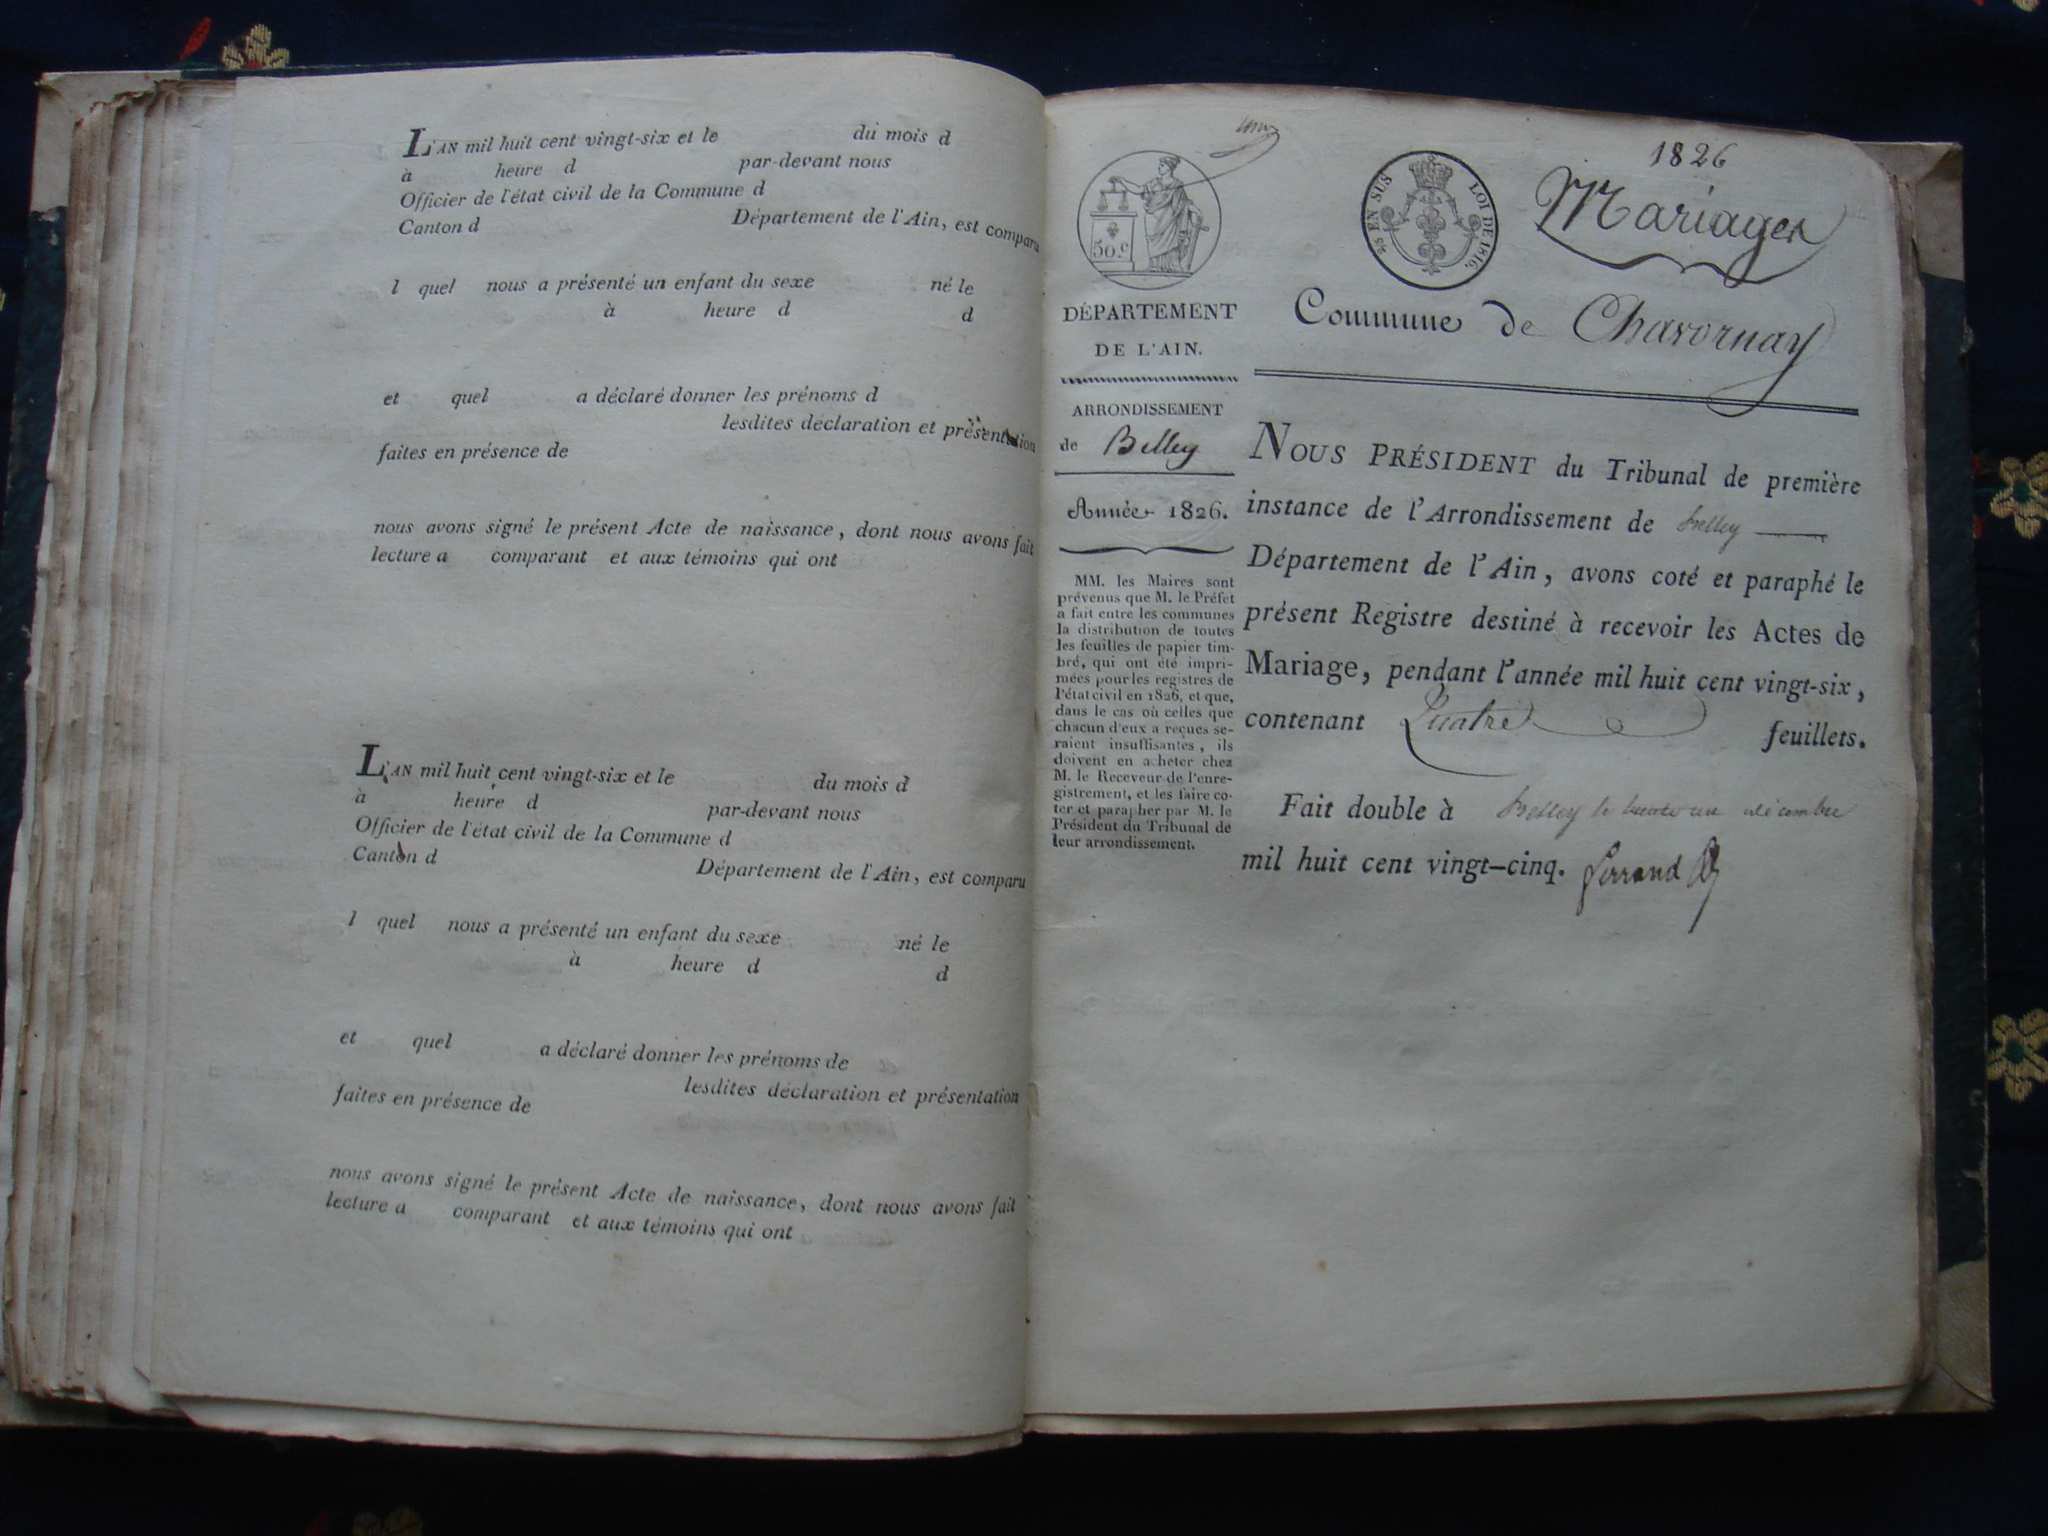 L'AN mil huit cent vingt-six et le du mois d
à heure d par-devant nous
Officier de l'état civil de la Commune d
Canton d Département de l'Ain, est comparu
l quel nous a présenté un enfant du sexe né le
à heure d d
et quel a déclaré donner les prénoms d
lesdites déclaration et présentation
faites en présence de
nous avons signé le présent Acte de naissance, dont nous avons fait
lecture a comparant et aux témoins qui ont
L'AN mil huit cent vingt-six et le du mois d
à heure d par-devant nous
Officier de l'état civil de la Commune d
Canton d Département de l'Ain, est comparu
l quel nous a présenté un enfant du sexe né le
à heure d d
et quel a déclaré donner les prénoms de
lesdites déclaration et présentation
faites en présence de
nous avons signé le présent Acte de naissance, dont nous avons fait
lecture a comparant et aux témoins qui ont
50.c
EN SUS LOI DE 1816.
1826
Mariages
DÉPARTEMENT
DE L'AIN.
Commune de Chavornay
ARRONDISSEMENT
de Belley
Année 1826.
MM. les Maires sont
prévenus que M. le Préfet
a fait entre les communes
la distribution de toutes
les feuilles de papier tim-
bré, qui ont été impri-
mées pour les registres de
l'état civil en 1826, et que,
dans le cas où celles que
chacun d'eux a reçues se-
raient insuffisantes, ils
doivent en acheter chez
M. le Receveur de l'enre-
gistrement, et les faire co-
ter et parapher par M. le
Président du Tribunal de
leur arrondissement.
NOUS PRÉSIDENT du Tribunal de première
instance de l'Arrondissement de belley
Département de l'Ain, avons coté et paraphé le
présent Registre destiné à recevoir les Actes de
Mariage, pendant l'année mil huit cent vingt-six,
contenant Quatre feuillets.
Fait double à Belley le trente un décembre
mil huit cent vingt-cinq. ferrand